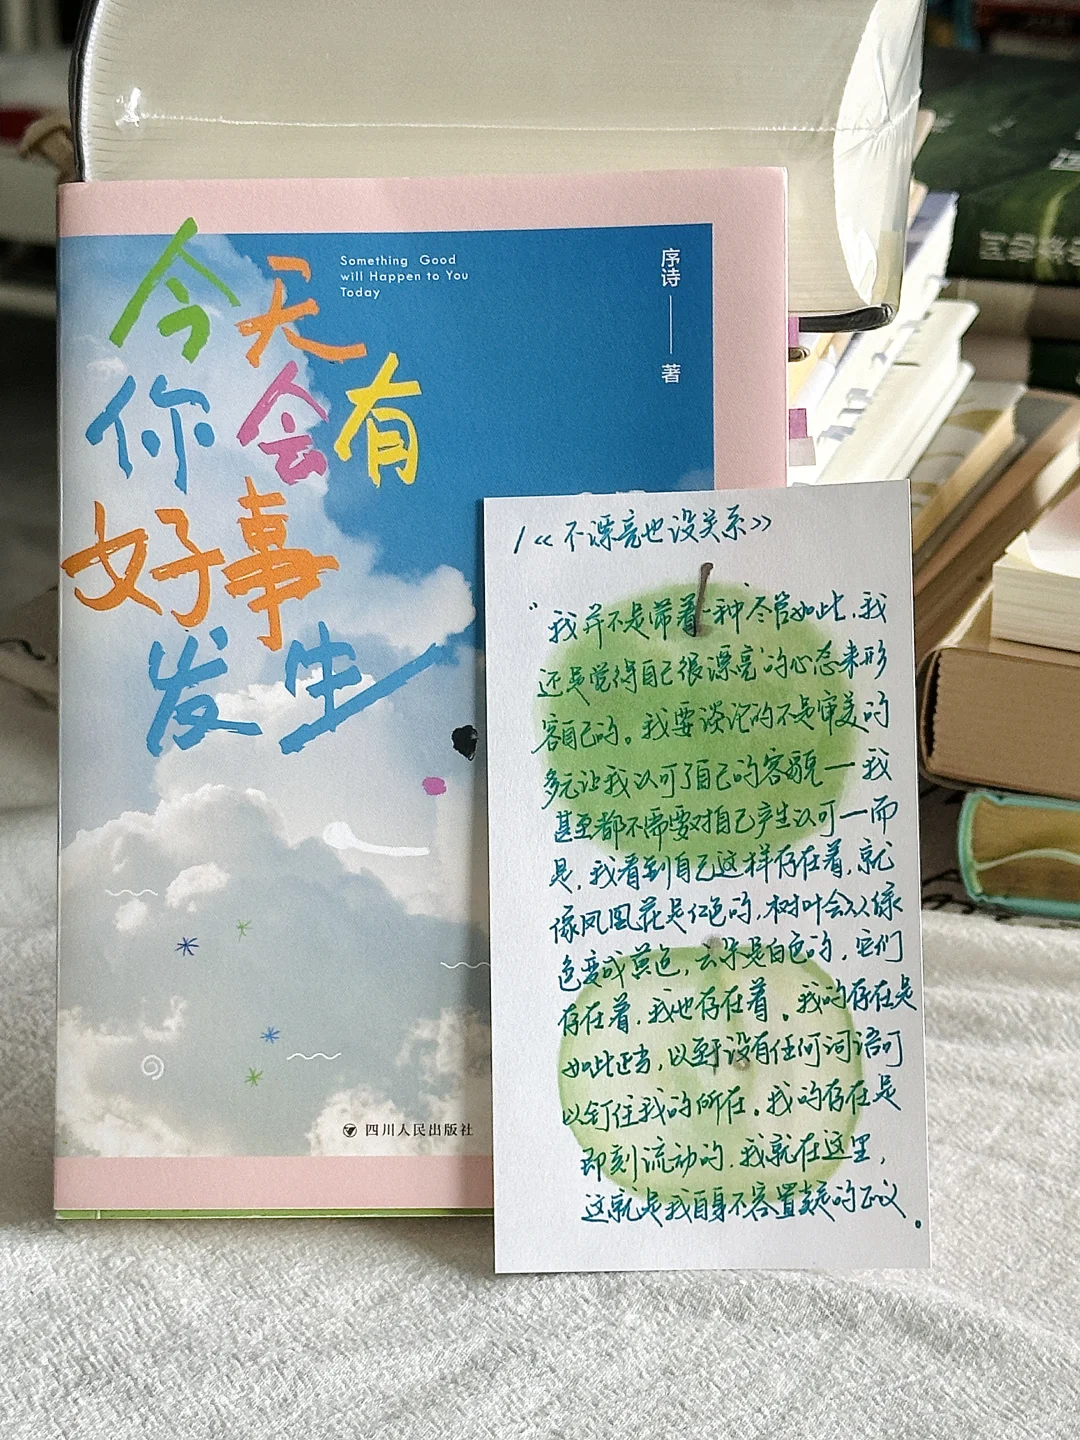 今天
你会有
好事
发生
Something Good
will Happen to You
Today
序诗——著
四川人民出版社
/《不漂亮也没关系》
"我并不是带着一种"尽管如此，我
还是觉得自己很漂亮"的心态来形
容自己的。我要谈论的不是审美的
多元让我认可了自己的容貌—我
甚至都不需要对自己产生认可—而
是，我看到自己这样存在着，就
像凤凰花是红色的，树叶会从绿
色变成黄色，云朵是白色的，它们
存在着，我也存在着。我的存在是
如此正当，以至于没有任何词语可
以钉住我的所在。我的存在是
即刻流动的，我就在这里，
这就是我自身不容置疑的正义。